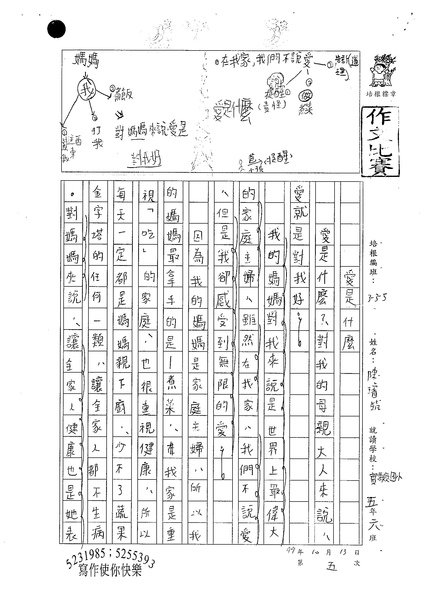 媽媽
我
飯
打我
對媽媽來說愛是
對我好
在我家,我們不說愛
愛是什麼
培根雜章
作文比賽
培根編班: 3-5-5
姓名:
就讀學校:
五年六班
99年10月13日
第五次
愛是什麼
愛是什麼?對我的母親大人來說,
愛就是對我好。
我的媽媽對我來說是世界上最偉大
的家庭主婦,雖然在我家,我們不說愛
,但是我卻感受到無限的愛。
因為我的媽媽是家庭主婦,所以我
的媽媽最拿手的是—煮菜,在我家是重
視「吃」的家庭,也很重視健康,所以
每天一定都是媽媽親下廚,少不了蔬果
金字塔的任何一類,讓全家人都不生病
。對媽媽來說,讓全家人健康也是她表
5231985;5255393
寫作使你快樂